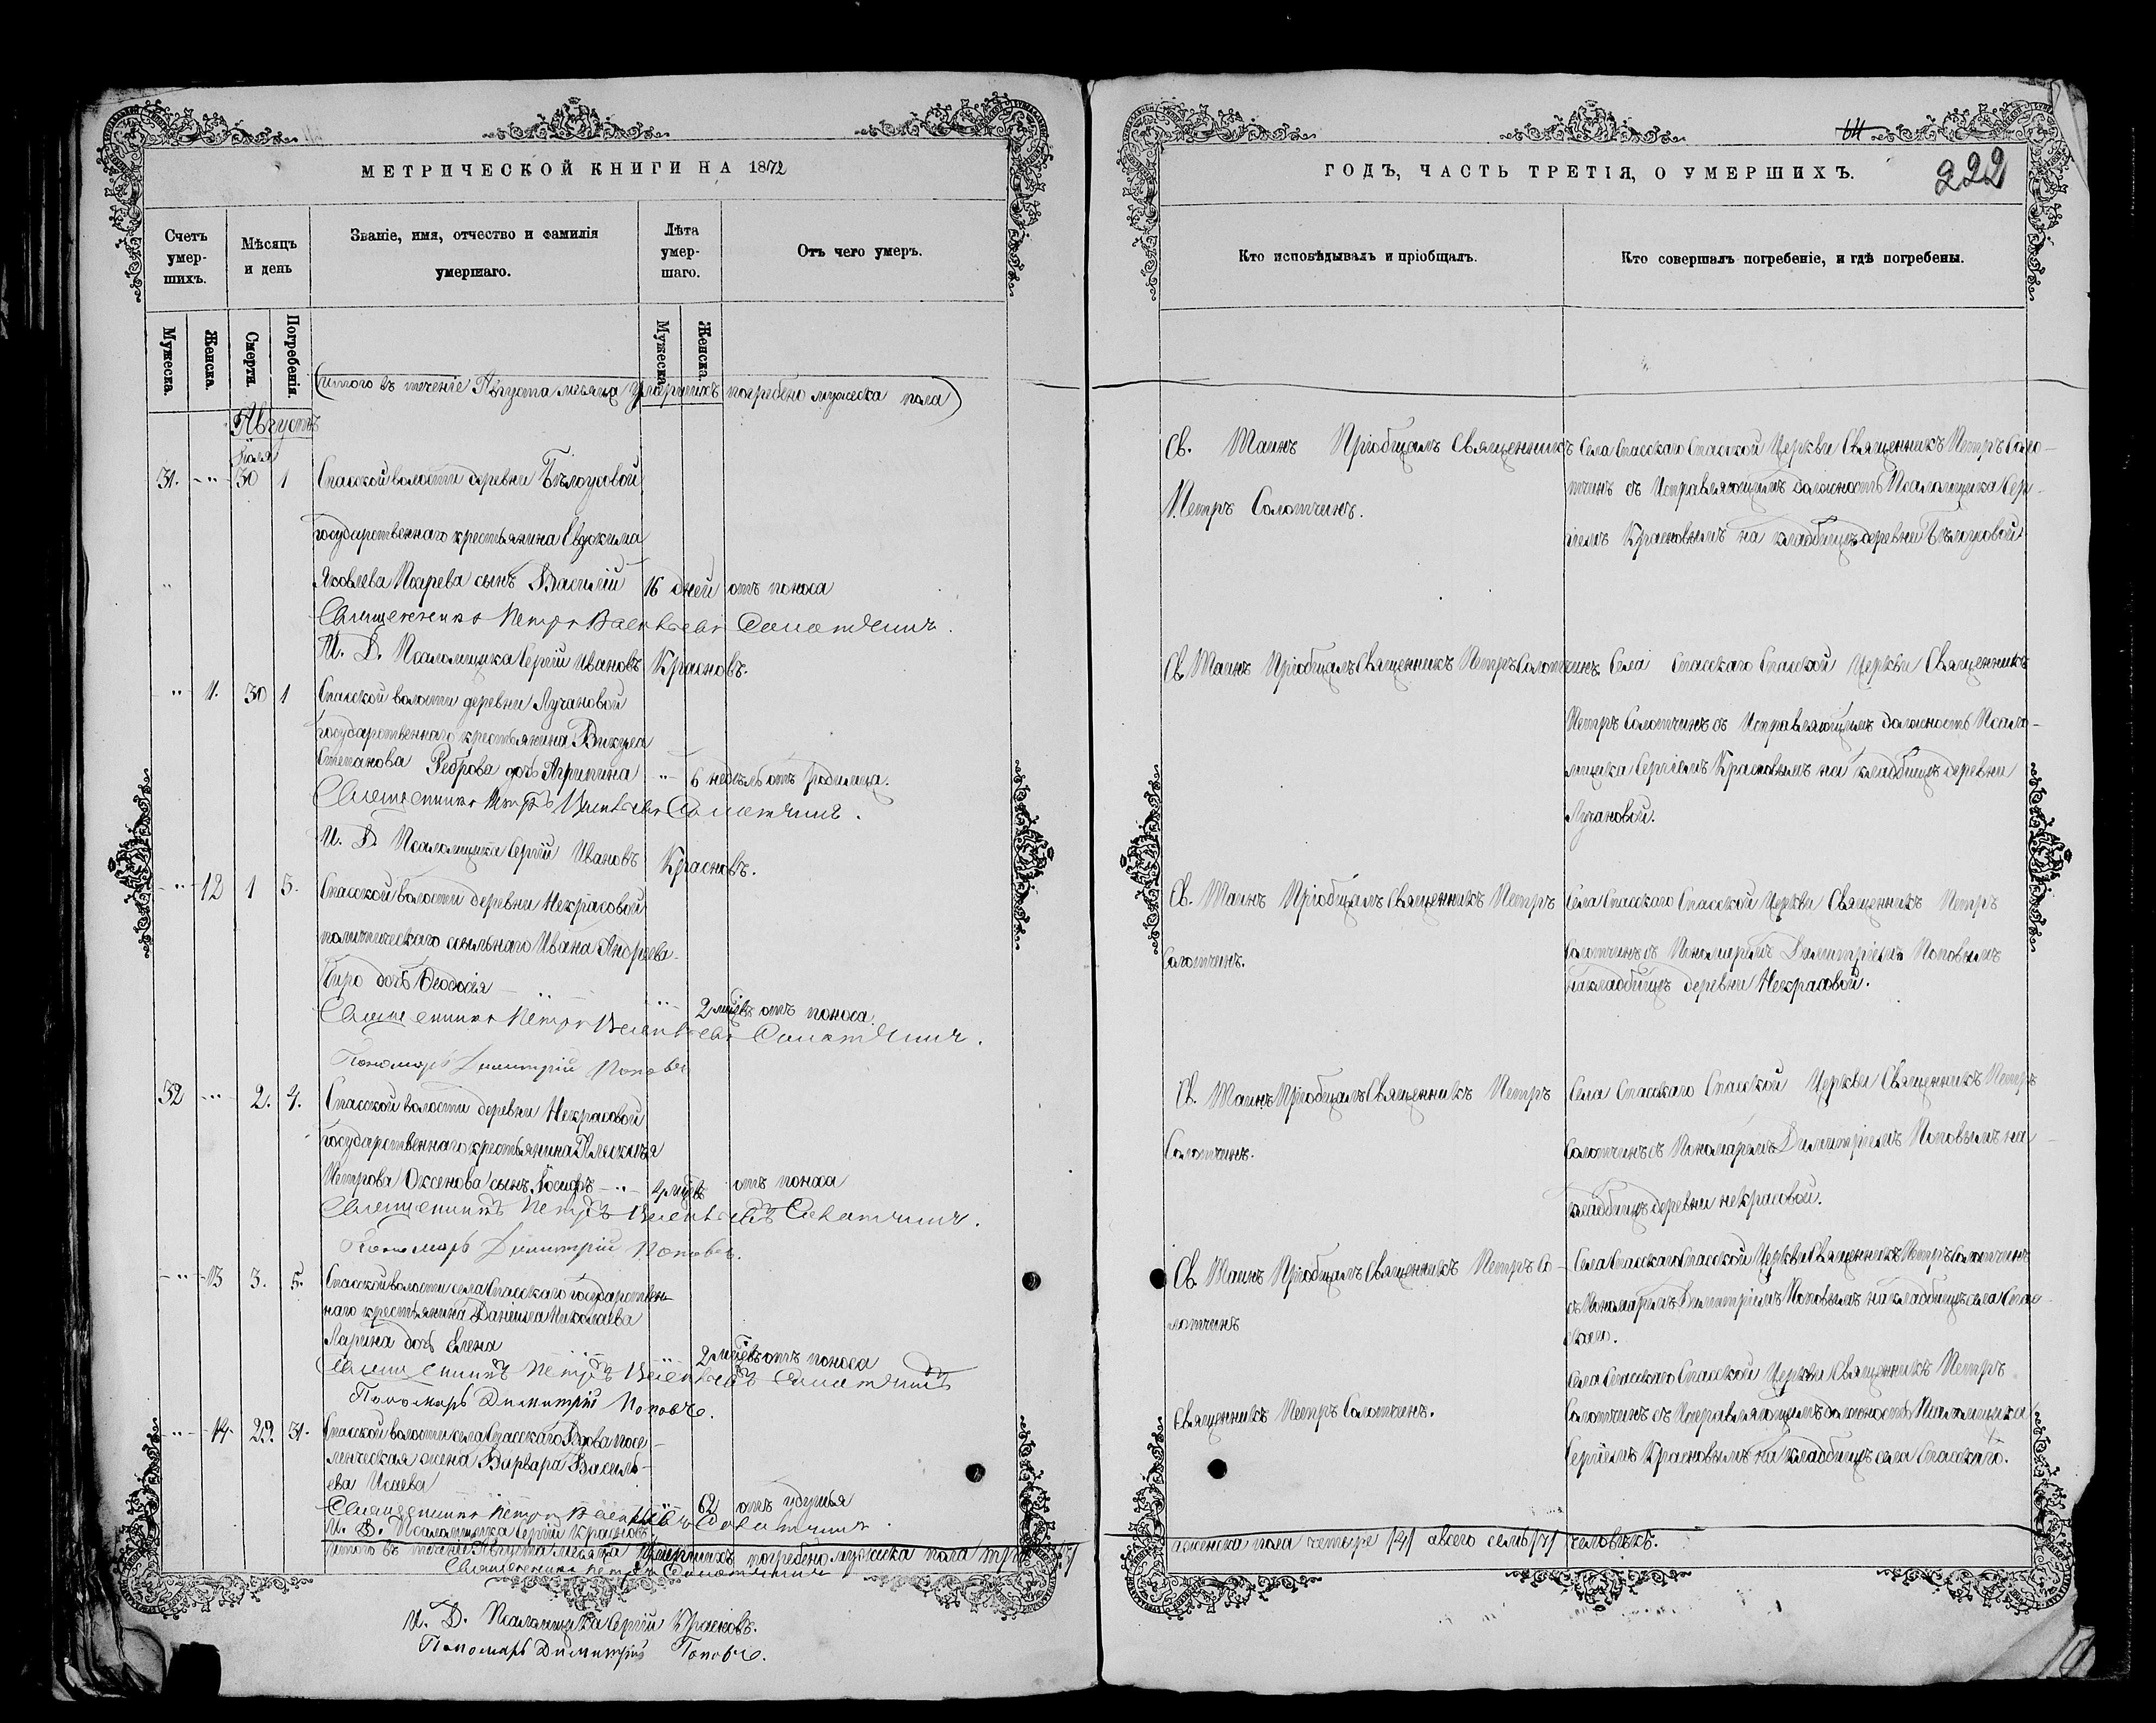 МЕТРИЧЕСКОЙ КНИГИ НА 1872
Счетъ умер-шихъ.
Мѣсяцъ и день
Званіе, имя, отчество и фамилія умершаго.
Лѣта умер-шаго.
Отъ чего умеръ.
Мужеска.
Женска.
Смерти.
Погребенія.
Мужеска.
Женска.
(итого въ теченіе Августа мѣсяца умершихъ погребено мужеска пола)
Августъ
Іюля
31. 30 1 Спасской волости деревни Бѣлоусовой
государственнаго крестьянина Евдокима
Яковлева Псарева сынъ Василій 16 дней отъ поноса
Священникъ Петръ Васильевъ Солотчинъ.
И. Д. Псаломщика Сергій Ивановъ Красновъ.
11. 30 1 Спасской волости деревни Лучановой
государственнаго крестьянина Викула
Степанова Реброва дочь Агрипина 6 недѣль отъ родимца.
Священникъ Петръ Васильевъ Солотчинъ.
И. Д. Псаломщика Сергій Ивановъ Красновъ.
12 1 5. Спасской волости деревни Некрасовой
политическаго ссыльнаго Ивана Андреева
дочь Ѳеодосія 2 мѣсцъ отъ поноса.
Священникъ Петръ Васильевъ Солотчинъ.
Пономарь Димитрій Поповъ
32 2. 4. Спасской волости деревни Некрасовой
государственнаго крестьянина
Петрова Оксенова сынъ Іосифъ 4 мѣсцъ отъ поноса
Священникъ Петръ Васильевъ Солотчинъ.
Пономарь Димитрій Поповъ.
13 3. 5. Спасской волости села Спасскаго государствен-
наго крестьянина Даніила Николаева
Ларина дочь Елена 2 мѣсцъ отъ поноса
Священникъ Петръ Васильевъ Солотчинъ
Пономарь Димитрій Поповъ.
14. 29. 31. Спасской волости села Спасскаго Вдова посе-
ленческая жена Варвара Василь-
ева Исаева 62 отъ удушья
Священникъ Петръ Васильевъ Солотчинъ
И. Д. Псаломщика Сергій Красновъ.
итого въ теченіе Августа мѣсяца умершихъ погребено мужеска пола
Священникъ Петръ Солотчинъ
И. Д. Псаломщика Сергій Красновъ.
Пономарь Димитрій Поповъ.
64
222
ГОДЪ, ЧАСТЬ ТРЕТІЯ, О УМЕРШИХЪ.
Кто исповѣдывалъ и пріобщалъ.
Кто совершалъ погребеніе, и гдѣ погребены.
Св. Таинъ Пріобщалъ Священникъ
Петръ Солотчинъ.
Села Спасскаго Спасской Церкви Священникъ Петръ Соло-
тчинъ съ Исправляющимъ должность Псаломщика Сер-
гіемъ Красновымъ на кладбищѣ деревни Бѣлоусовой
Св. Таинъ Пріобщалъ Священникъ Петръ Солотчинъ.
Села Спасскаго Спасской Церкви Священникъ
Петръ Солотчинъ съ Исправляющимъ должность Псало-
мщика Сергіемъ Красновымъ на кладбищѣ деревни
Лучановой.
Св. Таинъ Пріобщалъ Священникъ Петръ
Солотчинъ.
Села Спасскаго Спасской Церкви Священникъ Петръ
Солотчинъ съ Пономаремъ Димитріемъ Поповымъ
на кладбищѣ деревни Некрасовой.
Св. Таинъ Пріобщалъ Священникъ Петръ
Солотчинъ.
Села Спасскаго Спасской Церкви Священникъ Петръ
Солотчинъ съ Пономаремъ Димитріемъ Поповымъ на
кладбищѣ деревни некрасовой.
Св. Таинъ Пріобщалъ Священникъ Петръ Со-
лотчинъ
Села Спасскаго Спасской Церкви Священникъ Петръ Солотчинъ
съ Пономаремъ Димитріемъ Поповымъ на кладбищѣ села Спас-
скаго.
Священникъ Петръ Солотчинъ.
Села Спасскаго Спасской Церкви Священникъ Петръ
Солотчинъ съ Исправляющимъ должность Псаломщика
Сергіемъ Красновымъ на кладбищѣ села Спасскаго.
женска пола четыре /4/ а всего семь /7/ человѣкъ.